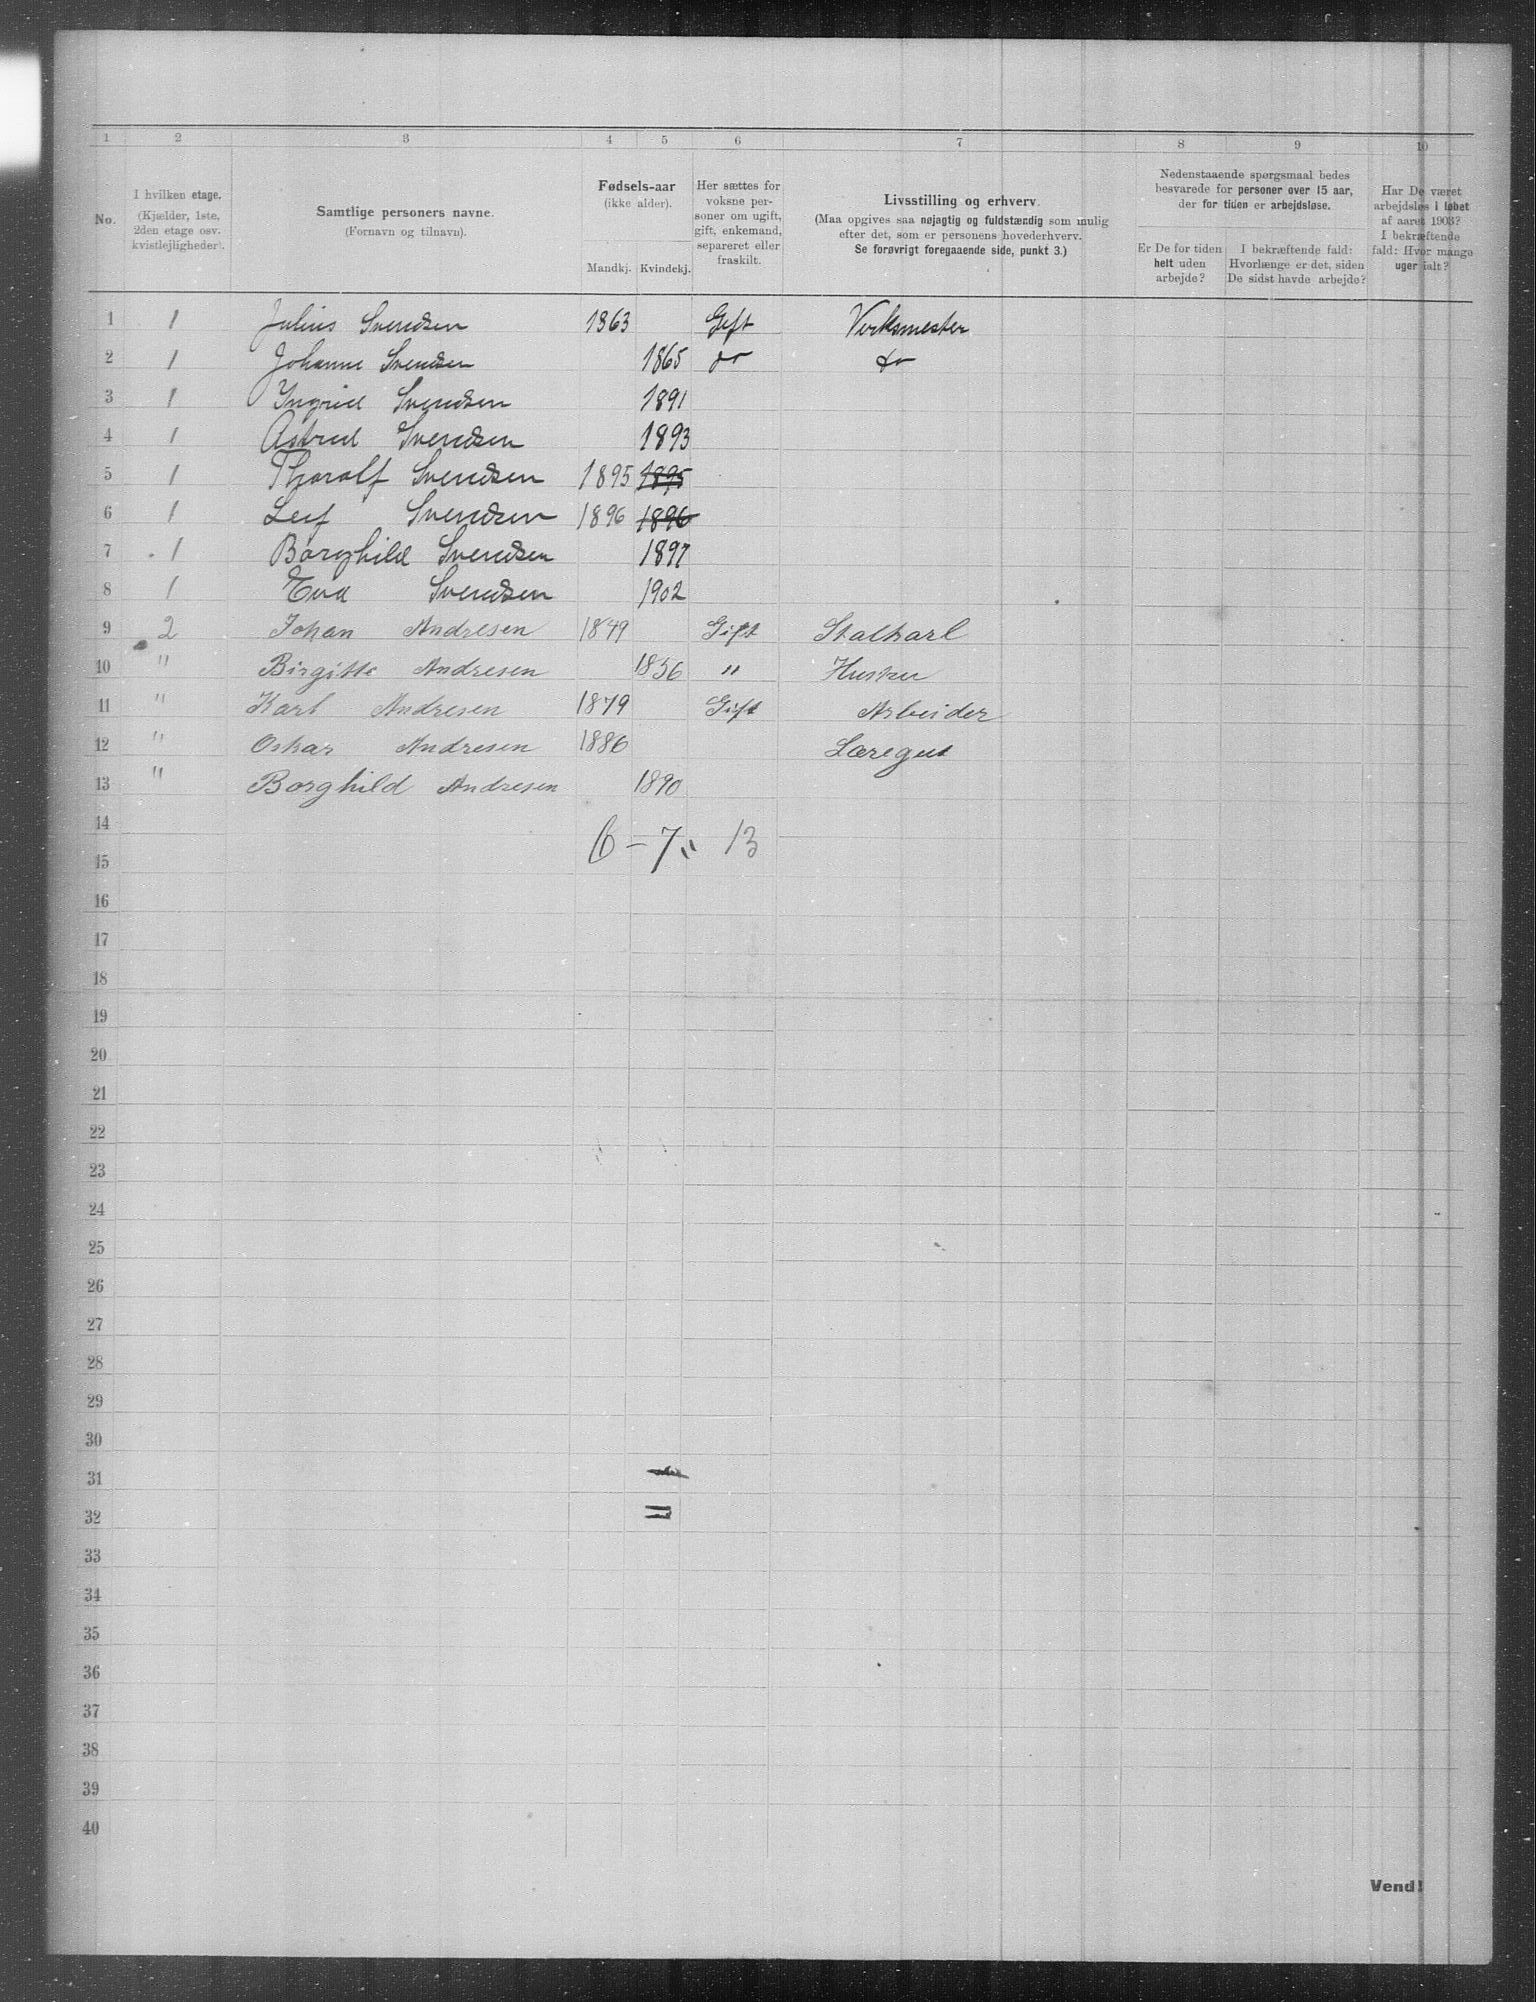 1 2 3 4 5 6 7 8 9 10
No.
I hvilken etage.
(Kjælder, 1ste,
2den etage osv.
kvistlejligheder).
Samtlige personers navne.
(Fornavn og tilnavn).
Fødsels-aar
(ikke alder).
Mandkj. Kvindekj.
Her sættes for
voksne per-
soner om ugift,
gift, enkemand,
separeret eller
fraskilt.
Livsstilling og erhverv.
(Maa opgives saa nøjagtig og fuldstændig som mulig
efter det, som er personens hovederhverv.
Se forøvrigt foregaaende side, punkt 3.)
Nedenstaaende spørgsmaal bedes
besvarede for personer over 15 aar,
der for tiden er arbejdsløse.
Er De for tiden
helt uden
arbejde?
I bekræftende fald:
Hvorlænge er det, siden
De sidst havde arbejde?
Har De været
arbejdsløs i løbet
af aaret 1903?
I bekræftende
fald: Hvor mange
uger ialt?
1 1 Julius Svendsen 1863 Gift Verksmester
2 1 Johanne Svendsen 1865 do do
3 1 Ingrid Svendsen 1891
4 1 Astrid Svendsen 1893
5 1 Thoralf Svendsen 1895 1895
6 1 Leif Svendsen 1896 1896
7 1 Borghild Svendsen 1897
8 1 Eva Svendsen 1902
9 2 Johan Andresen 1849 Gift Stalkarl
10 " Birgitte Andresen 1856 " Hustru
11 " Karl Andresen 1879 Gift Arbeider
12 " Oskar Andresen 1886 Læregut
13 " Borghild Andresen 1890
14
6 – 7 " 13
15
16
17
18
19
20
21
22
23
24
25
26
27
28
29
30
31
32
33
34
35
36
37
38
39
40
Vend!